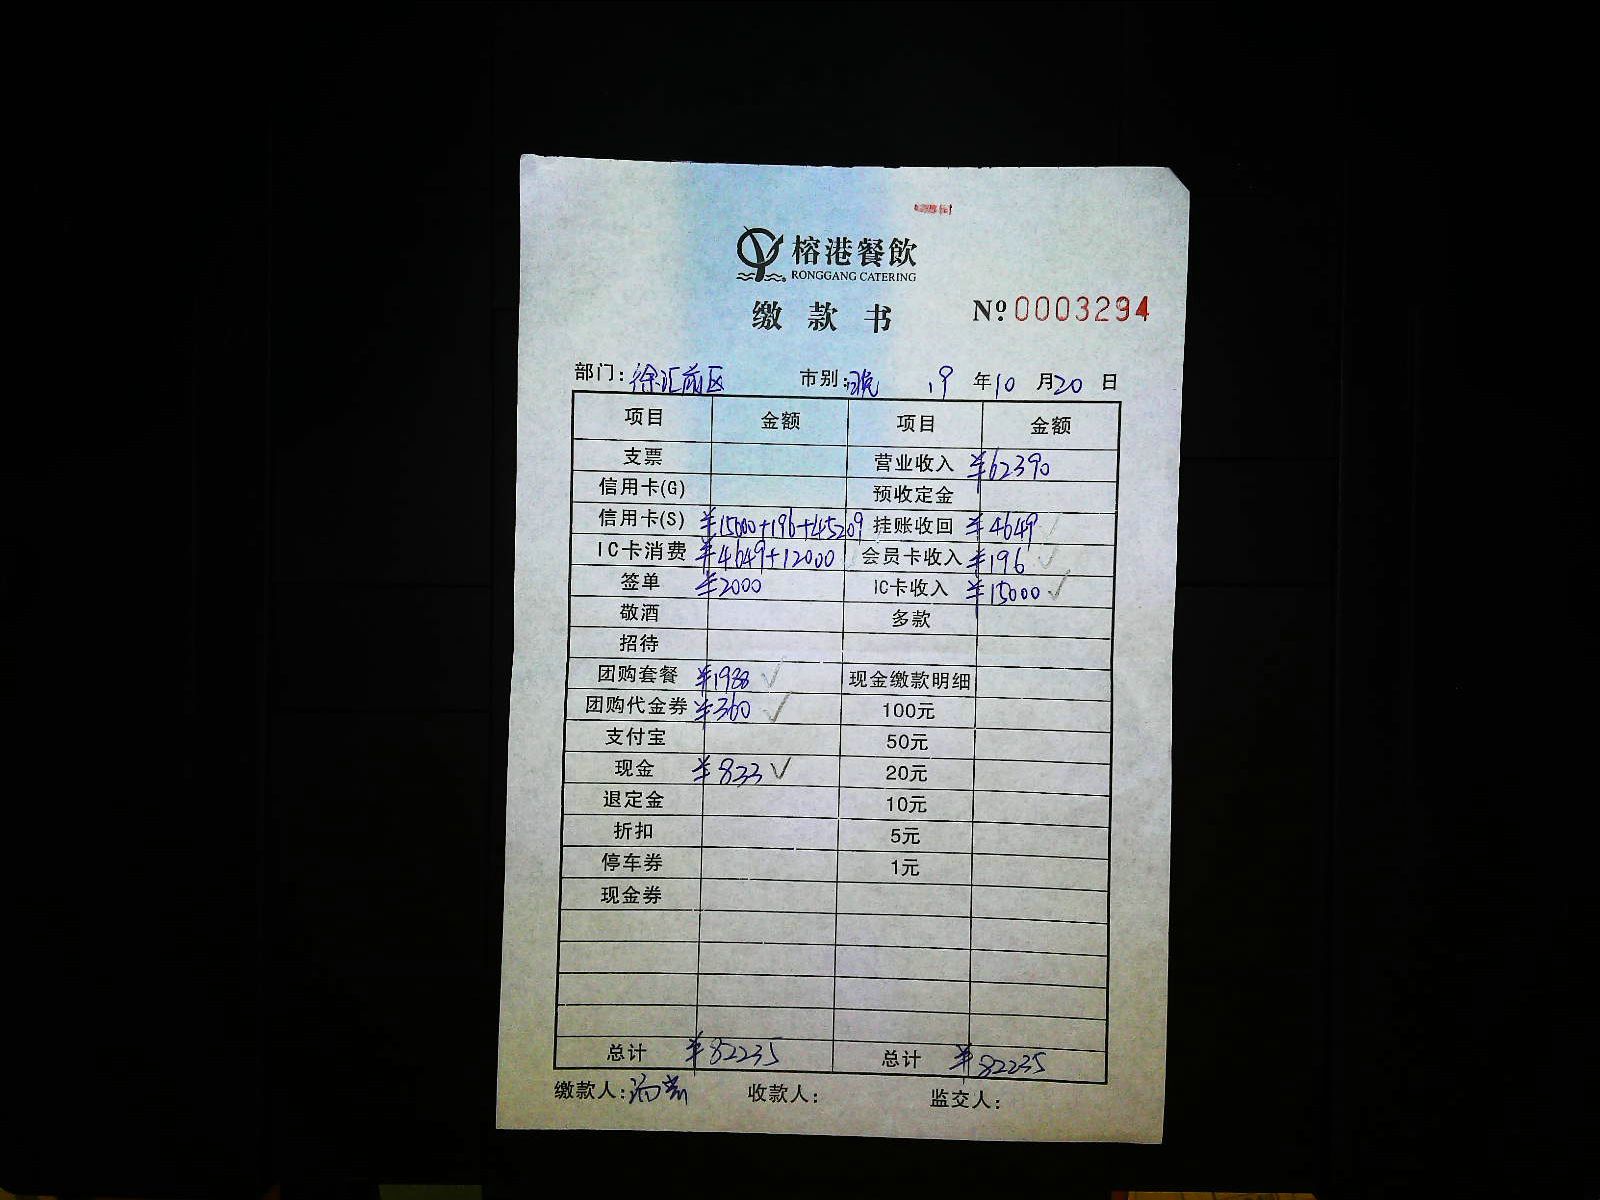 榕港餐飲
RONGGANG CATERING
缴款书 Nº 0003294
部门: 徐汇前区 市别: 晚 19 年 10 月 20 日
项目 金额 项目 金额
支票 营业收入 ¥62390
信用卡(G) 预收定金
信用卡(S) ¥15000+196+45209 挂账收回 ¥4649
IC卡消费 ¥4649+12000 会员卡收入 ¥196
签单 ¥2000 IC卡收入 ¥15000
敬酒 多款
招待
团购套餐 ¥1988 现金缴款明细
团购代金券 ¥360 100元
支付宝 50元
现金 ¥833 20元
退定金 10元
折扣 5元
停车券 1元
现金券
总计 ¥82235 总计 ¥82235
缴款人: 收款人: 监交人: